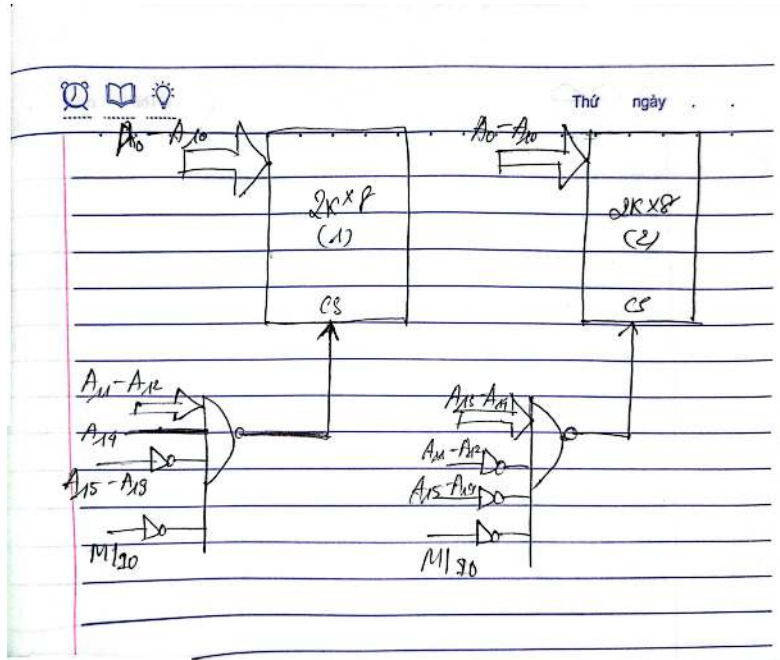 Thứ ngày
A0-A10
A0-A10
2K×8
(1)
CS
2K×8
(2)
CS
A11-A12
A14
A15-A19
M/IO
A13-A14
A11-A12
A15-A19
M/IO